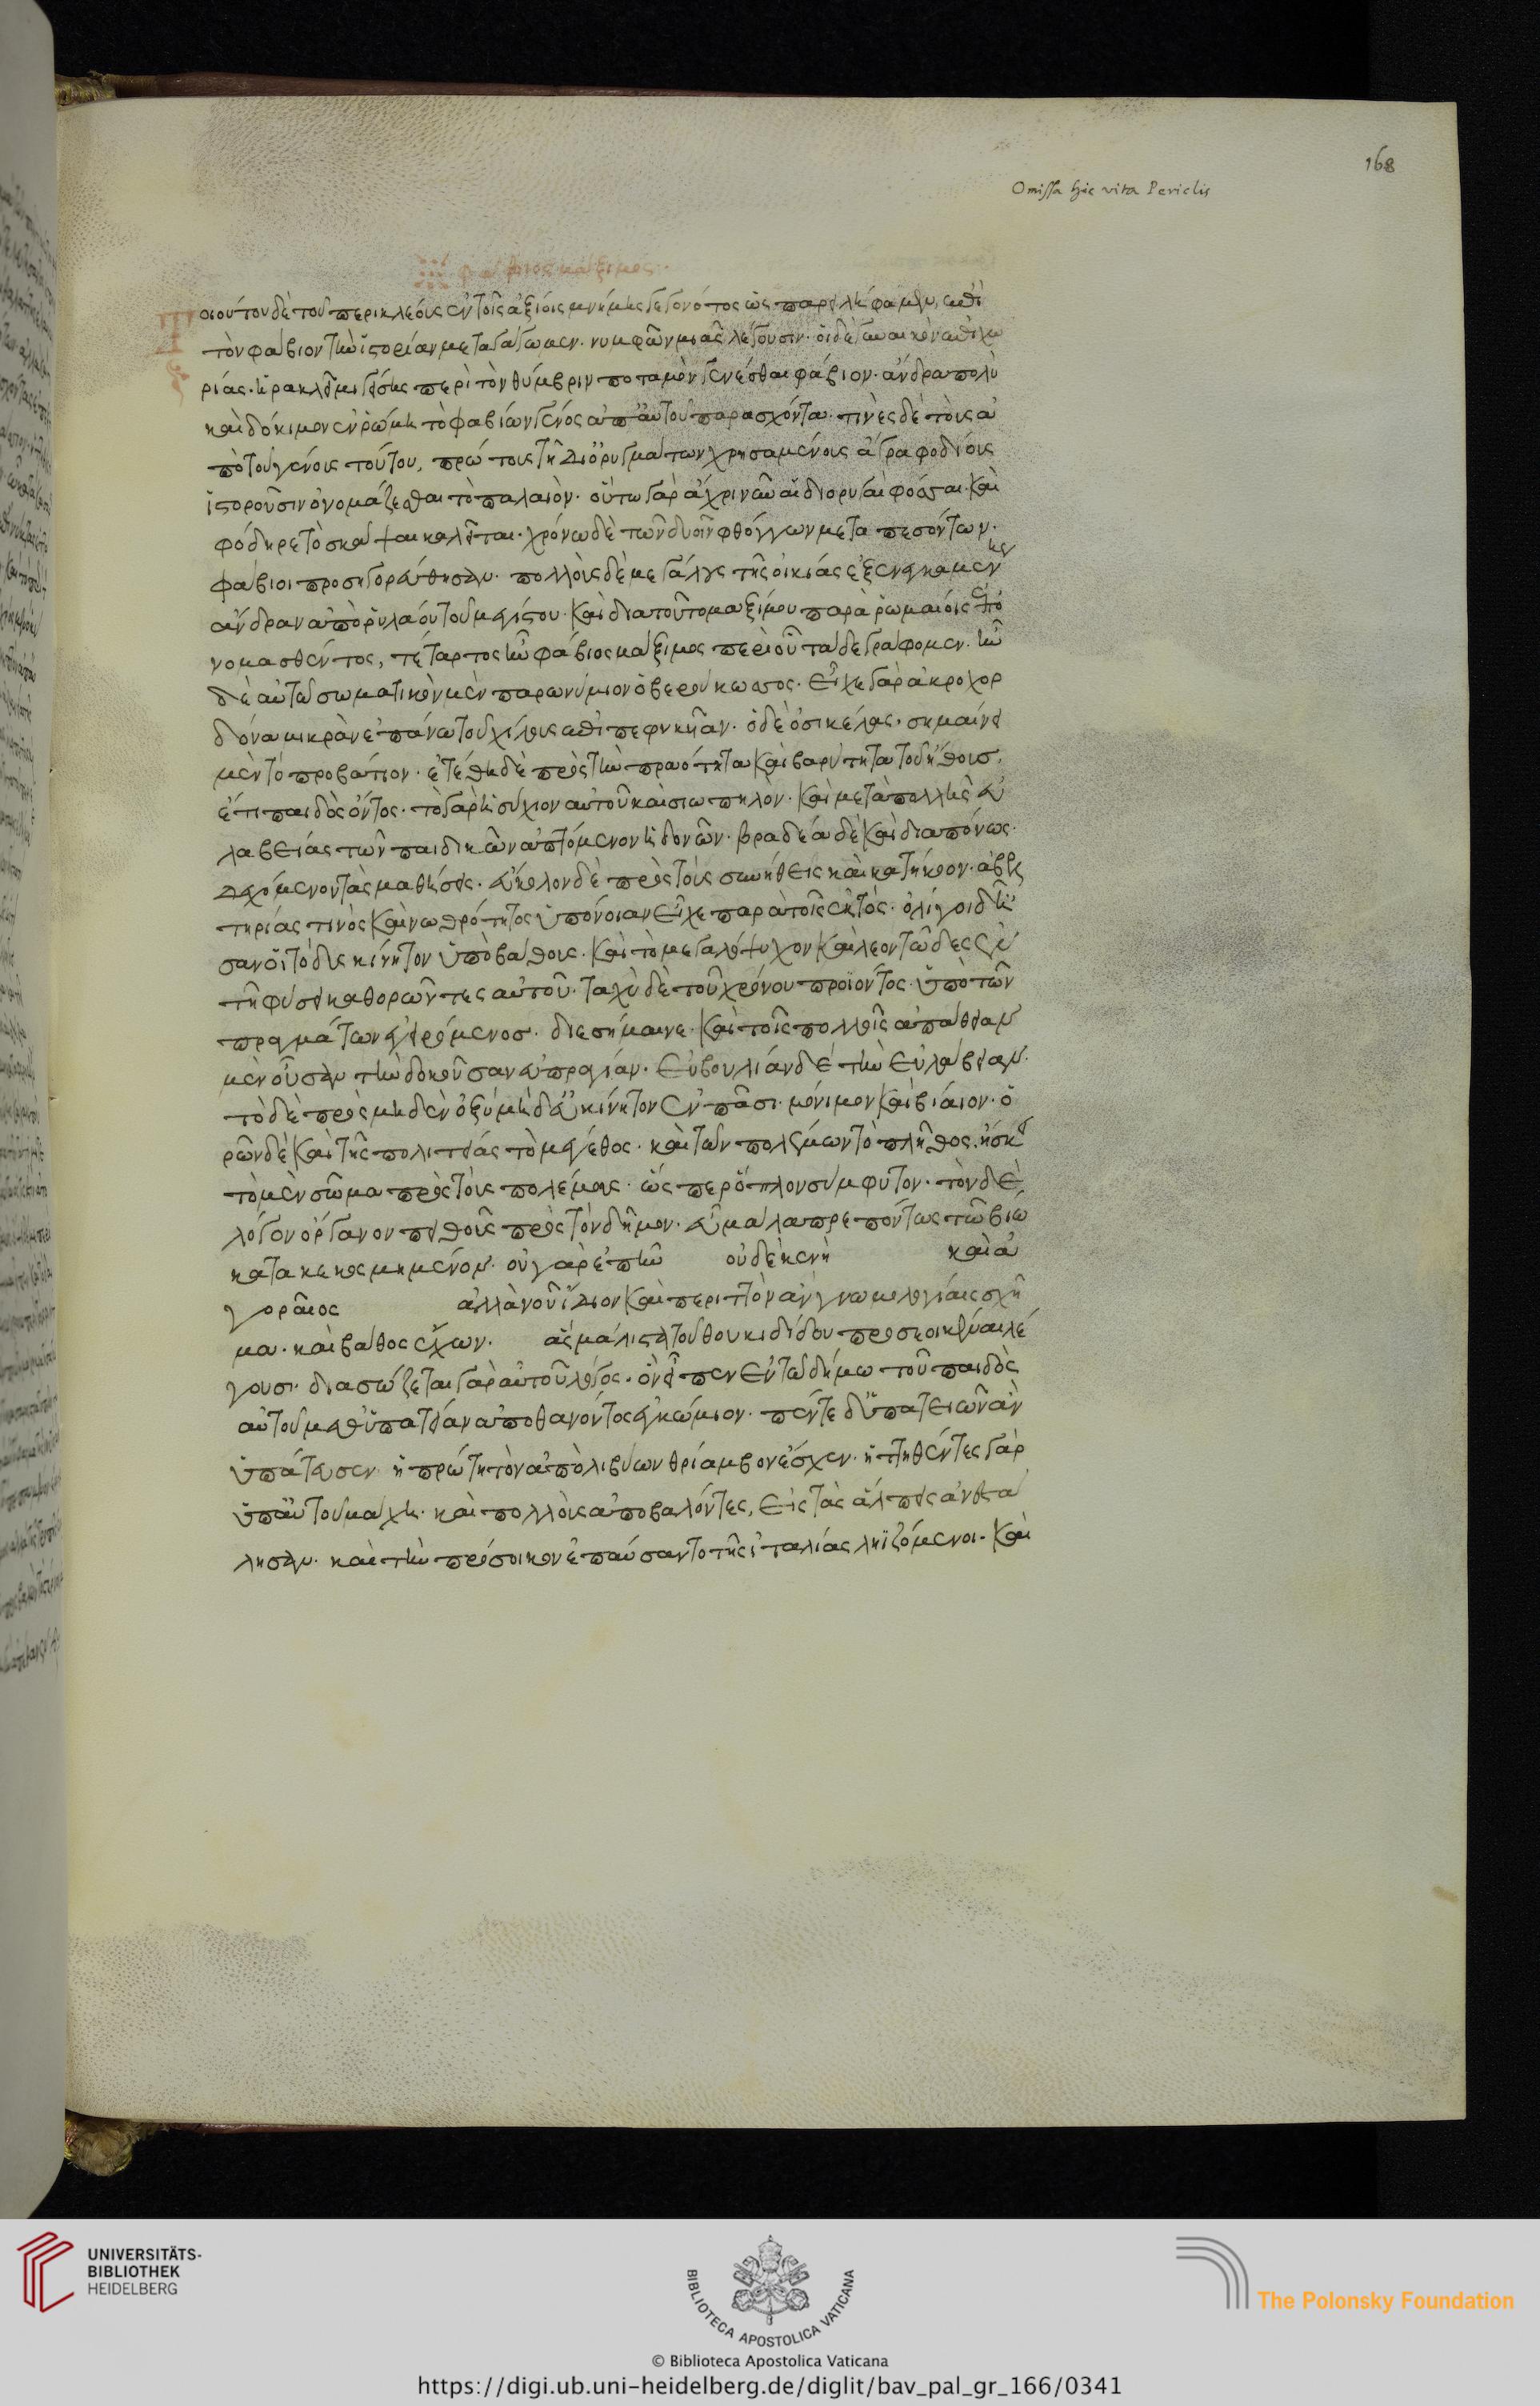 168
Omissa hic vita Periclis
φάβιος μάξιμος.
οιούτου δὲ τοῦ περικλέους ἐν τοῖς ἀξίοις μνήμης γεγονότος ὡς παρειλήφαμεν, ἐπὶ
τὸν φάβιον τὴν ἱστορίαν μεταγάγωμεν. νυμφῶν μιᾶς λέγουσιν. οἱ δὲ γυναικὸς ἐπιχω
ρίας. ἡρακλεῖ μιγείσης περὶ τὸν θύμβριν ποταμὸν γενέσθαι φάβιον. ἄνδρα πολὺ
καὶ δόκιμον ἐν ῥώμη τὸ φαβίων γένος ἀπ' αὐτοῦ παρασχόντα. τινὲς δὲ τοὺς ἀ
πὸ τοῦ γένους τούτου, πρώτους τῆ δι' ὀρυγμάτων χρησαμένους ἄγρα φοδίους
ἱστοροῦσιν ὀνομάζεσθαι τὸ παλαιόν. οὕτω γὰρ ἄχρι νῦν αἱ διορυγαὶ φόσσαι. καὶ
φόδηρε τὸ σκάψαι καλεῖται. χρόνω δὲ τῶν δυοῖν φθόγγων μεταπεσόντων.
φάβιοι προσηγορεύθησαν. πολλοὺς δὲ μεγάλους τῆς οἰκίας ἐξενηκαμέν
ἄνδραν ἀπὸ ῥύλα οὐ τοῦ μεγίστου. καὶ διατοῦτο μαξίμου παρὰ ῥωμαίοις ἐπο
νομασθέντος, τέταρτος ἦν φάβιος μάξιμος περὶ οὗ τάδε γράφομεν. ἦν
δὲ αὐτῶ σωματικὸν μὲν παρωνύμιον ὁ βερούκωσος. εἶχε γὰρ ἀκροχορ
δόνα μικρὰν ἐπάνω τοῦ χείλους ἐπιπεφυκῆαν. ὁ δὲ ὀσικέλας. σημαίνει
μὲν τὸ προβάτιον. ἐτέθη δὲ πρὸς τὴν πραότητα καὶ βαρύτητα τοῦ ἤθους.
ἔτι παιδὸς ὄντος. τὸ γὰρ ἡσύχιον αὐτοῦ καὶ σιωπηλὸν. καὶ μετὰ πολλῆς εὐ
λαβείας τῶν παιδικῶν ἁπτόμενον ἡδονῶν. βραδέα δὲ καὶ διαπόνως
δεχόμενον τὰς μαθήσεις. εὔκολον δὲ πρὸς τοὺς συνήθεις καὶ κατήκοον. ἀβελ
τηρίας τινὸς καὶ νωθρότητος ὑπόνοιαν εἶχε παρὰ τοῖς ἐκτός. ὀλίγοι δ' ἦ
σαν οἱ τὸ δυσκίνητον ὑπὸ βάθους. καὶ τὸ μεγαλόψυχον καὶ λεοντῶδες ἐν
τῆ φύσει καθορῶντες αὐτοῦ. ταχὺ δὲ τοῦ χρόνου προϊόντος. ὑπὸ τῶν
πραγμάτων ἐγειρόμενος. διεσήμαινε. καὶ τοῖς πολλοῖς ἀπάθειαν
μὲν οὖσαν τὴν δοκοῦσαν ἀπραγίαν. εὐβουλίαν δὲ τὴν εὐλάβειαν.
τὸ δὲ πρὸς μηδὲν ὀξὺ μηδ' εὐκίνητον ἐν πᾶσι. μόνιμον καὶ βίαιον. ὁ
ρῶν δὲ καὶ τῆς πολιτείας τὸ μέγεθος. καὶ τῶν πολεμίων τὸ πλῆθος. ἤσκει
τὸ μὲν σῶμα πρὸς τοὺς πολέμους. ὥσπερ ὅπλον σύμφυτον. τὸν δὲ
λόγον ὄργανον πειθοῦς πρὸς τὸν δῆμον. εὖ μάλα πρεπόντως τῶ βίω
κατακεκοσμημένον. οὐ γὰρ ἐπῆν οὐδὲ κενὴ καὶ ἀ
γοραῖος ἀλλὰ νοῦ ἴδιον καὶ περιττὸν ἀν γνωμολογίαις σχῆ
μα. καὶ βάθος ἔχων. ἃς μάλιστα τοῦ θουκιδίδου προσεοικέναι λέ
γουσι. διασώζεται γὰρ αὐτοῦ λόγος. ὃν εἶπεν ἐν τῶ δήμω τοῦ παιδὸς
αὐτοῦ μεθ' ὑπατείαν ἀποθανόντος ἐγκώμιον. πέντε δ' ὑπατειῶν ἃν
ὑπάτευσεν. ἡ πρώτη τὸν ἀπὸ λιβύων θρίαμβον ἔσχεν. ἡττηθέντες γὰρ
ὑπ' αὐτοῦ μάχη. καὶ πολλοὺς ἀποβαλόντες, εἰς τὰς ἄλπεις ἀνεστά
λησαν. καὶ τὴν πρόσοικον ἐπαύσαντο τῆς ἰταλίας ληϊζόμενοι. καὶ
UNIVERSITÄTS-
BIBLIOTHEK
HEIDELBERG
BIBLIOTECA APOSTOLICA VATICANA
The Polonsky Foundation
© Biblioteca Apostolica Vaticana
https://digi.ub.uni-heidelberg.de/diglit/bav_pal_gr_166/0341